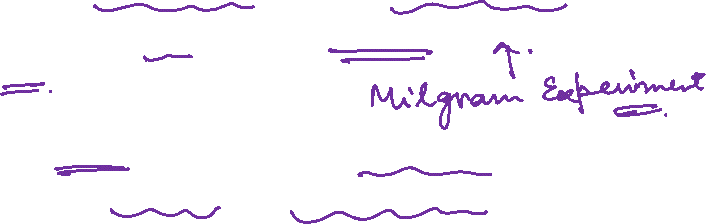 Milgram Experiment